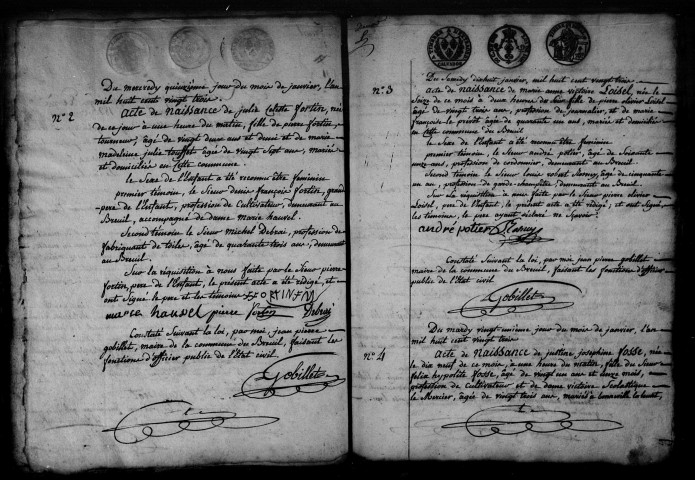 n° 2
Du mercredy quinzième jour du mois de janvier, l'an
mil huit cent vingt trois.
acte de naissance de julie Celeste fortin, née
de ce jour à une heure du matin, fille de pierre fortin,
tourneur, agé de vingt deux ans et demi et de marie
madeleine julie touffet agée de vingt Sept ans, mariés
et domiciliés en Cette commune.
le Sexe de l'Enfant a été reconnu être féminin
premier témoin, le Sieur denis françois fortin, grand
pere de l'Enfant, profession de Cultivateur, demeurant au
Breuil, accompagné de dame marie hausel.
Second témoin le Sieur Michel Debrai, profession de
fabriquant de toile, agé de quarante trois ans, demeurant
au Breuil.
Sur la réquisition à nous faite par le Sieur pierre
fortin, pere de l'Enfant, le présent acte a été rédigé, et
ont Signé le pere et les témoins FFORTIN
marie hausel pierre fortin Debrai
Constaté Suivant la loi, par moi, jean pierre
gobillet, maire de la commune du Breuil, faisant les
fonctions d'officier public de l'état civil.
Gobillet
n° 3
Du Samedy dixhuit janvier, mil huit cent vingt trois
acte de naissance de marie anne victoire Loisel, née le
Seize de ce mois à deux heures du Soir, fille de pierre olivier Loisel
agé de vingt trois ans, profession de journalier, et de marie
françoise le prévôt agée de quarante ans, mariés et domiciliés
en Cette commune du Breuil
le Sexe de l'Enfant a été reconnu être féminin
premier témoin, le Sieur andré potier, agé de Soixante
onze ans, profession de cordonnier, demeurant au Breuil.
Second témoin le Sieur louis robert agé de cinquante
un an, profession de garde-champêtre, demeurant au Breuil.
la réquisition à nous faite par le Sieur pierre olivier
Loisel, pere de l'Enfant, le présent acte a été rédigé; et ont Signé
les témoins, le pere ayant déclaré ne Savoir.
andré potier
Constaté Suivant la loi, par moi jean pierre gobillet
maire de la commune du Breuil, faisant les fonctions d'officier
public de l'état civil
Gobillet
n° 4
Du mardy vingt unième jour du mois de janvier, l'an
mil huit cent vingt trois
acte de naissance de justine josephine fosse, née
le dix neuf de ce mois, à une heure du matin, fille du Sieur
felix hyppolite fosse, agé de vingt un ans et onze mois,
profession de Cultivateur et de dame victoire Scholastique
le Mercier, agée de vingt trois ans, mariés à